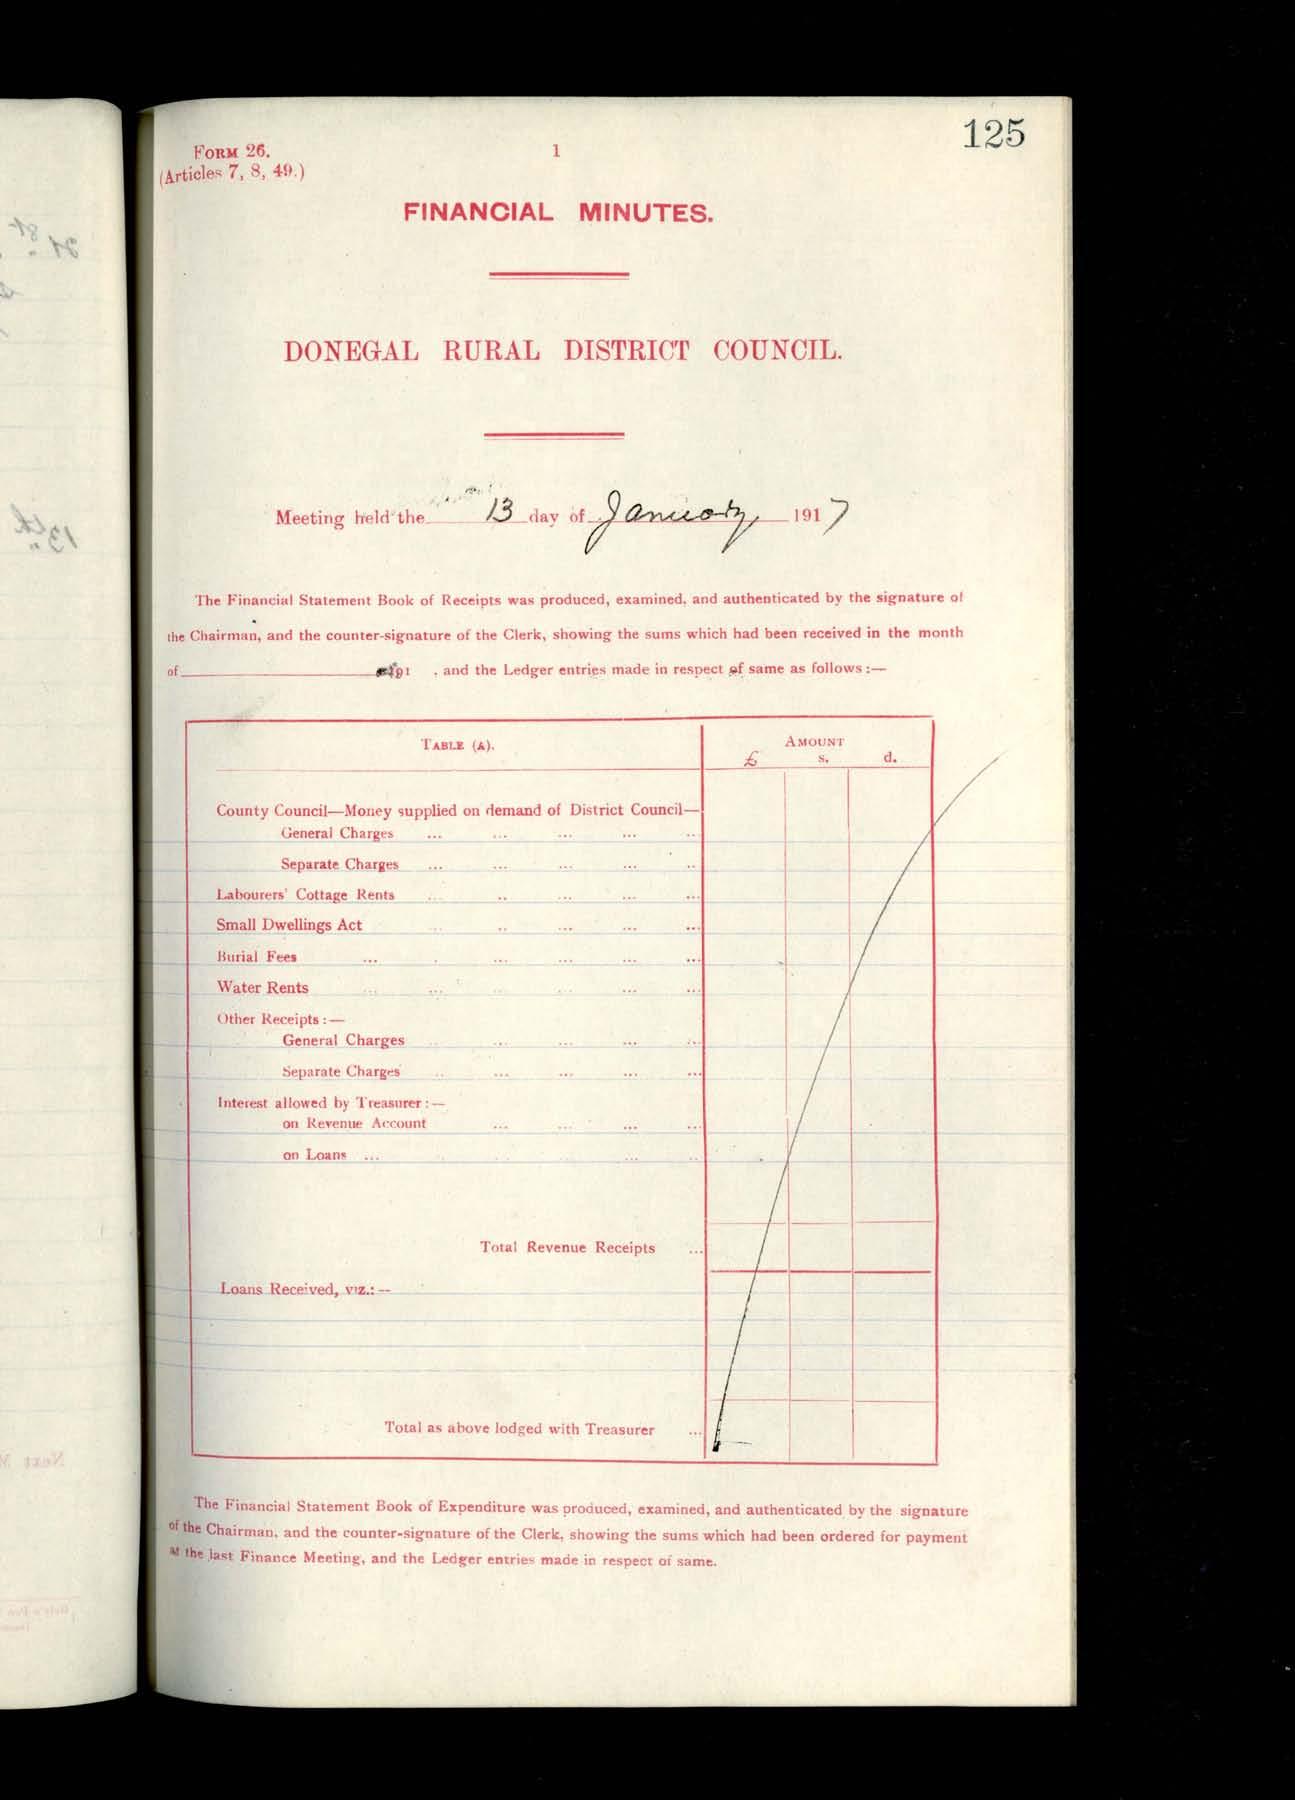 125
FORM 26.
1
(Articles 7, 8, 49.)
FINANCIAL MINUTES.
DONEGAL RURAL DISTRICT COUNCIL.
Meeting held the 13 day of January 1917
The Financial Statement Book of Receipts was produced, examined, and authenticated by the signature of
the Chairman, and the counter-signature of the Clerk, showing the sums which had been received in the month
of 191 , and the Ledger entries made in respect of same as follows :—
TABLE (A).
AMOUNT
£ s. d.
County Council—Money supplied on demand of District Council—
General Charges ... ... ... ... ...
Separate Charges ... ... ... ... ..
Labourers' Cottage Rents ... .. ... ... ...
Small Dwellings Act ... .. ... ... ...
Burial Fees ... . ... ... ... ...
Water Rents ... ... ... ... ... ...
Other Receipts :—
General Charges .. ... ... ... ...
Separate Charges .. ... ... ... ...
Interest allowed by Treasurer :—
on Revenue Account ... ... ... ...
on Loans ... . .. .. ... ..
Total Revenue Receipts ...
Loans Received, viz.: —
Total as above lodged with Treasurer ...
The Financial Statement Book of Expenditure was produced, examined, and authenticated by the signature
of the Chairman, and the counter-signature of the Clerk, showing the sums which had been ordered for payment
at the last Finance Meeting, and the Ledger entries made in respect of same.